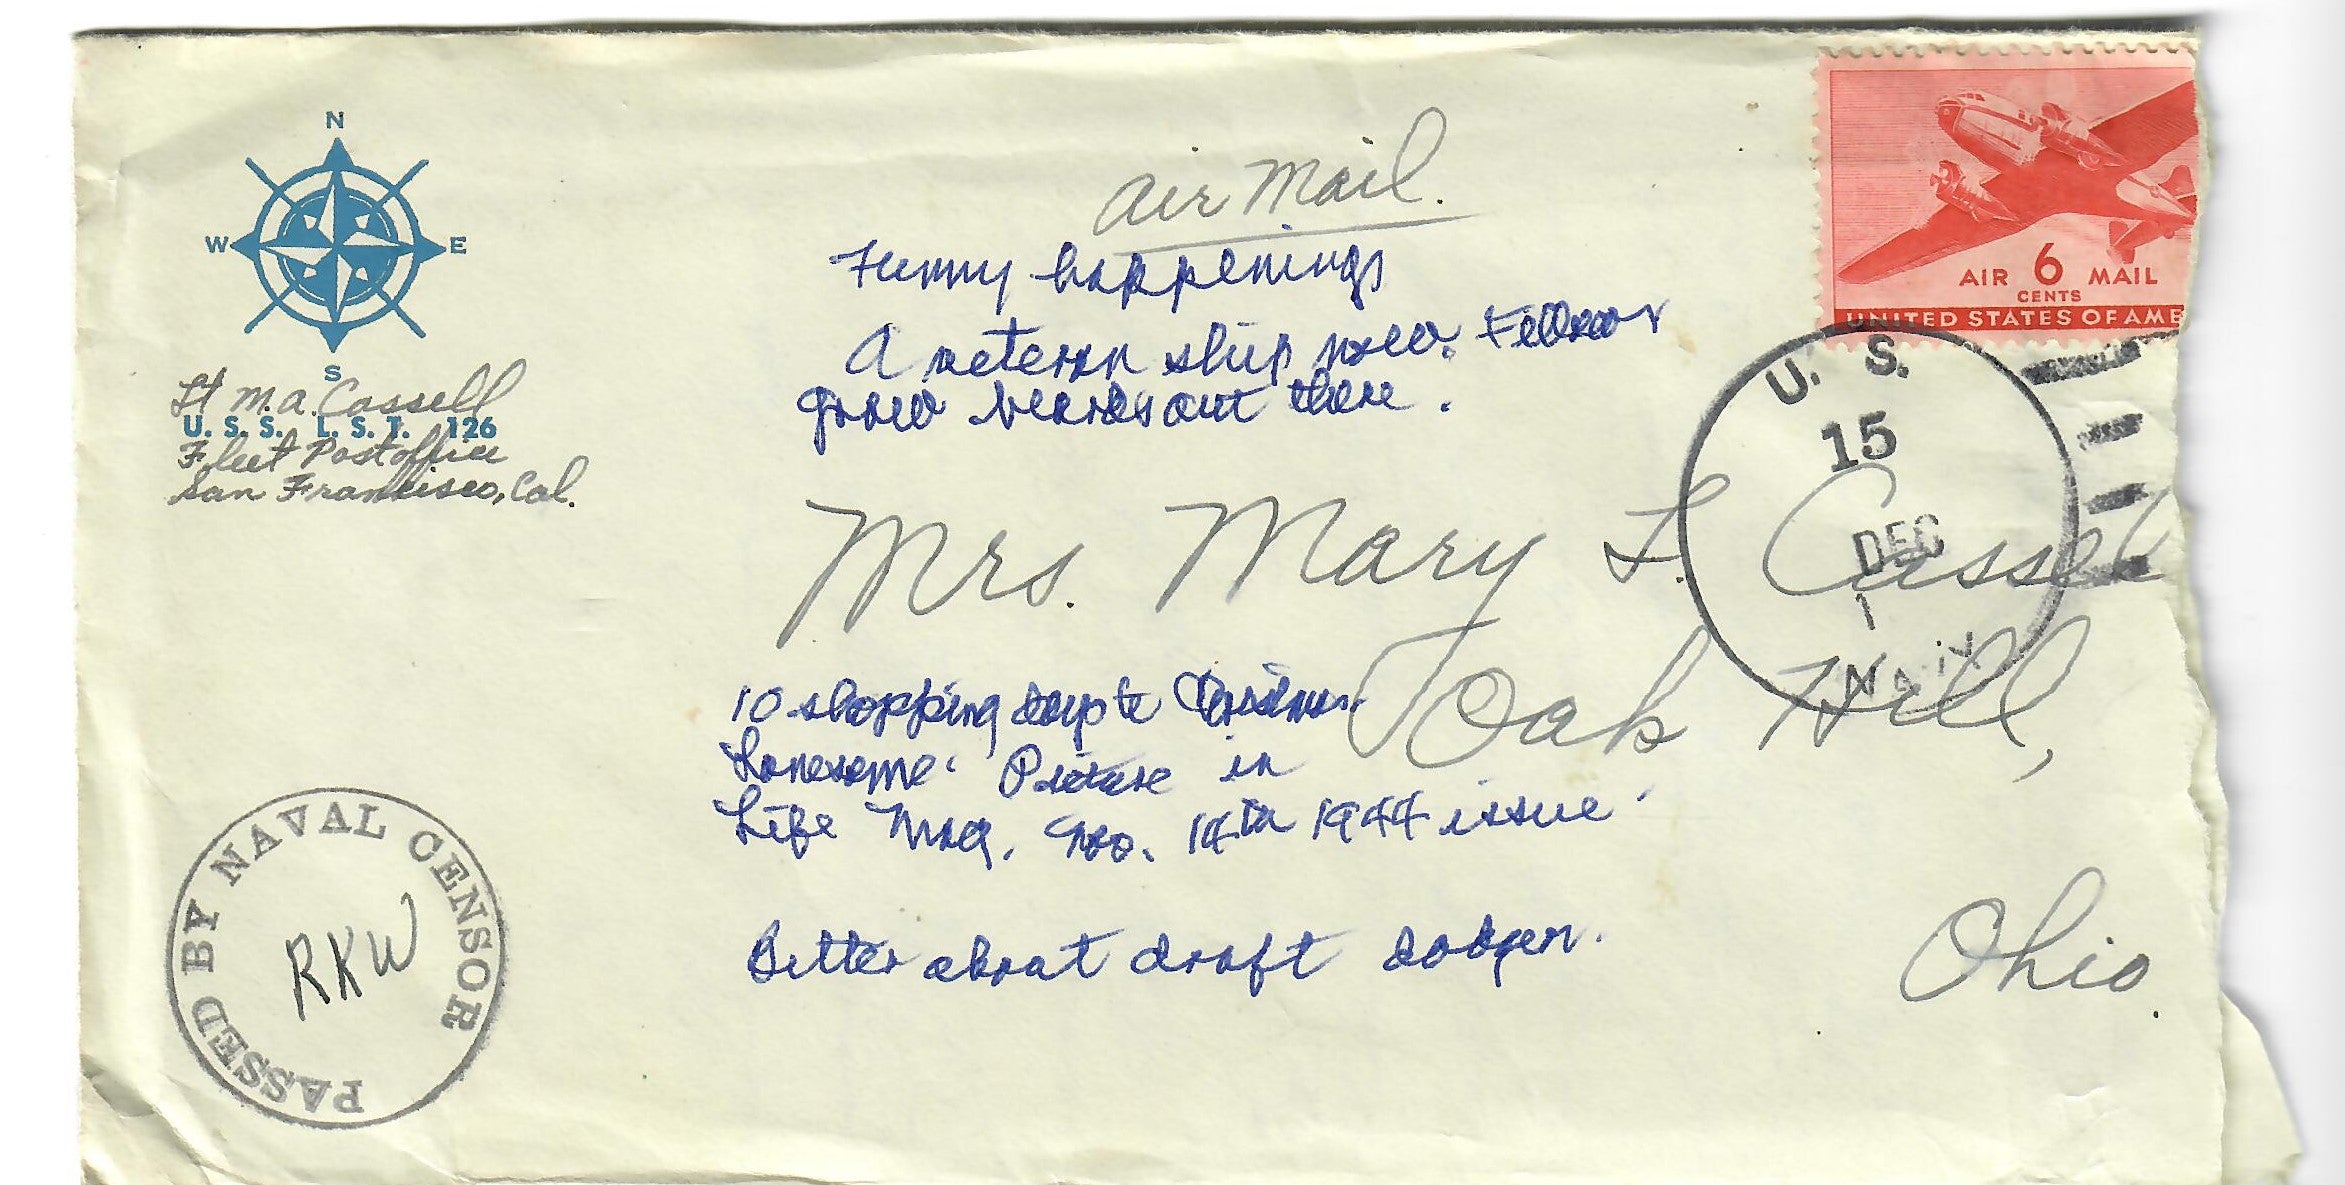 N
W E
S
Lt M.A. Cassell
U. S. S. L. S. T. 126
Fleet Postoffice
San Francisco, Cal.
Air Mail.
Funny happenings
A veteran ship now. Fellows
grow beards out there.
AIR 6 MAIL
CENTS
UNITED STATES OF AME
U. S.
15
DEC
1
NAVY
Mrs. Mary L. Cassel
Oak Hill,
Ohio.
10 shopping days to Christmas.
Lonesome. Picture in
Life Mag. Nov. 14th 1944 issue.
Bitter about draft dodger.
PASSED BY NAVAL CENSOR
RKW